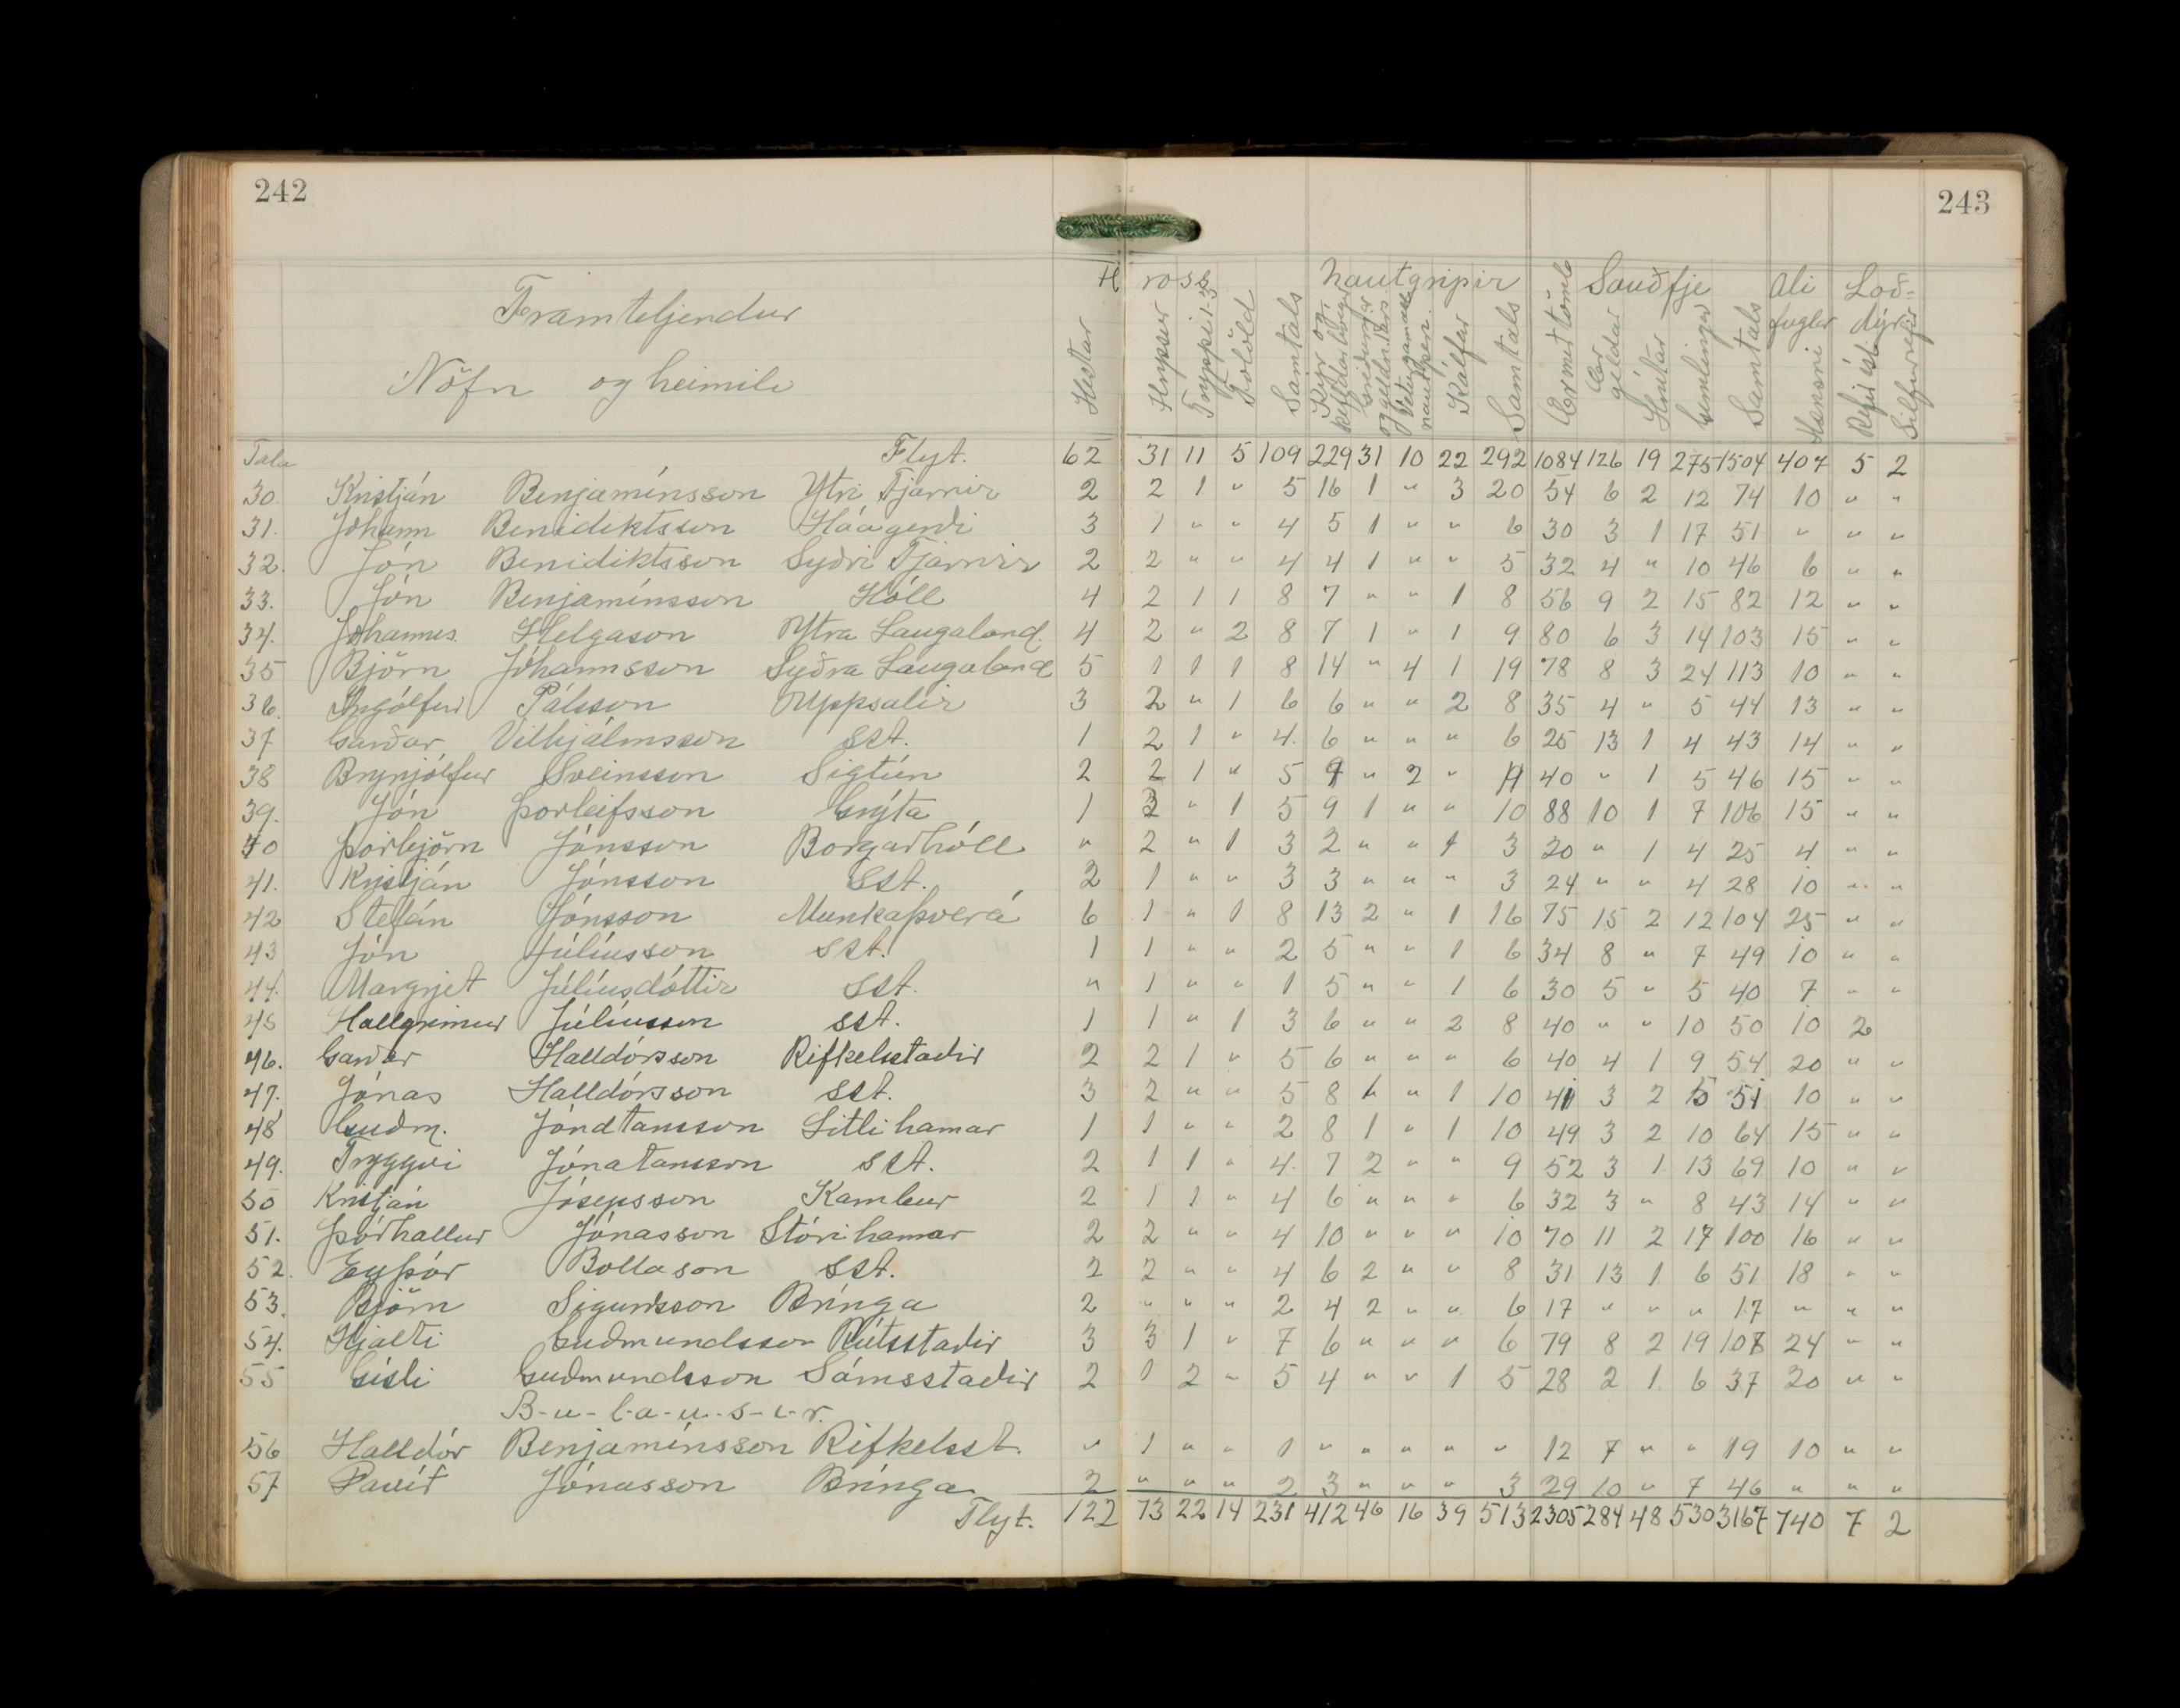 242
243
Framteljendur
Nöfn og heimili
Hross Nautgripir Sauðfje Ali fuglar Loð-dýr
Hestar Hryssur Tryppi 1-3 Folöld Samtals Kýr og kefldar kvígur Kálfar Samtals Ær með lömb Ær geldar Hrútar Gemlingar Samtals Hænsni Refir ísl. Silfurrefir
Tala Flyt. 62 31 11 5 109 229 31 10 22 292 1084 126 19 275 1504 407 5 2
30 Kristján Benjamínsson Ytri Tjarnir 2 2 1 " 5 16 1 " 3 20 54 6 2 12 74 10 " "
31. Jóhann Benidiktsson Háagerði 3 1 " " 4 5 1 " " 6 30 3 1 17 51 " " "
32. Jón Benidiktsson Syðri Tjarnir 2 2 " " 4 4 1 " " 5 32 4 " 10 46 6 " "
33. Jón Benjamínsson Hóll 4 2 1 1 8 7 " " 1 8 56 9 2 15 82 12 " "
34. Jóhannes Helgason Ytra Laugaland. 4 2 " 2 8 7 1 " 1 9 80 6 3 14 103 15 " "
35 Björn Jóhannsson Syðra Laugaland 5 1 1 1 8 14 " 4 1 19 78 8 3 24 113 10 " "
36. Ingólfur Pálsson Uppsalir 3 2 " 1 6 6 " " 2 8 35 4 " 5 44 13 " "
37 Garðar Vilhjálmsson sst. 1 2 1 " 4. 6 " " " 6 25 13 1 4 43 14 " "
38 Brynjólfur Sveinsson Sigtún 2 2 1 " 5 9 " 2 " 11 40 " 1 5 46 15 " "
39. Jón Þorleifsson Grýta 1 3 " 1 5 9 1 " " 10 88 10 1 7 106 15 " "
40 Þorbjörn Jónsson Borgarhóll " 2 " 1 3 2 " " 1 3 20 " 1 4 25 4 " "
41. Kristján Jónsson sst. 2 1 " " 3 3 " " " 3 24 " " 4 28 10 " "
42 Stefán Jónsson Munkaþverá 6 1 " 1 8 13 2 " 1 16 75 15 2 12 104 25 " "
43 Jón Júlíusson sst. 1 1 " " 2 5 " " 1 6 34 8 " 7 49 10 " "
44. Margrjet Júlíusdóttir sst. " 1 " " 1 5 " " 1 6 30 5 " 5 40 7 " "
45 Hallgrímur Júlíusson sst. 1 1 " 1 3 6 " " 2 8 40 " " 10 50 10 2
46. Garðar Halldórsson Rifkelsstaðir 2 2 1 " 5 6 " " " 6 40 4 1 9 54 20 " "
47. Jónas Halldórsson sst. 3 2 " " 5 8 1 " 1 10 41 3 2 5 51 10 " "
48 Guðm. Jónatansson Litli hamar 1 1 " " 2 8 1 " 1 10 49 3 2 10 64 15 " "
49. Tryggvi Jónatansson sst. 2 1 1 " 4. 7 2 " " 9 52 3 1 13 69 10 " "
50 Kristján Jósepsson Kambur 2 1 1 " 4 6 " " " 6 32 3 " 8 43 14 " "
51. Þórhallur Jónasson Stóri hamar 2 2 " " 4 10 " " " 10 70 11 2 17 100 16 " "
52. Eyþór Bollason sst. 2 2 " " 4 6 2 " " 8 31 13 1 6 51 18 " "
53. Björn Sigurðsson Bringa 2 " " " 2 4 2 " " 6 17 " " " 17 " " "
54. Hjalti Guðmundsson Rútsstaðir 3 3 1 " 7 6 " " " 6 79 8 2 19 108 24 " "
55 Gísli Guðmundsson Sámsstaðir 2 1 2 " 5 4 " " 1 5 28 2 1 6 37 20 " "
B-ú-l-a-u-s-i-r.
56 Halldór Benjamínsson Rifkelsst. " 1 " " 1 " " " " " 12 7 " " 19 10 " "
57 Davíð Jónasson Bringa 2 " " " 2 3 " " " 3 29 10 " 7 46 " " "
Flyt. 122 73 22 14 231 412 46 16 39 513 2305 284 48 530 3167 740 7 2